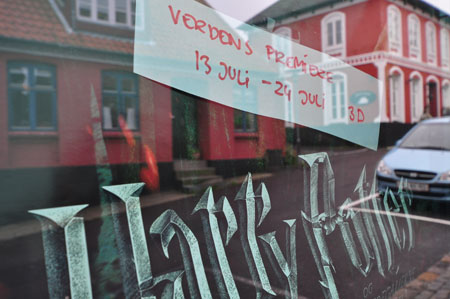 VERDENS PREMIERE
13 JULI - 24 JULI
3D
Harry Potter